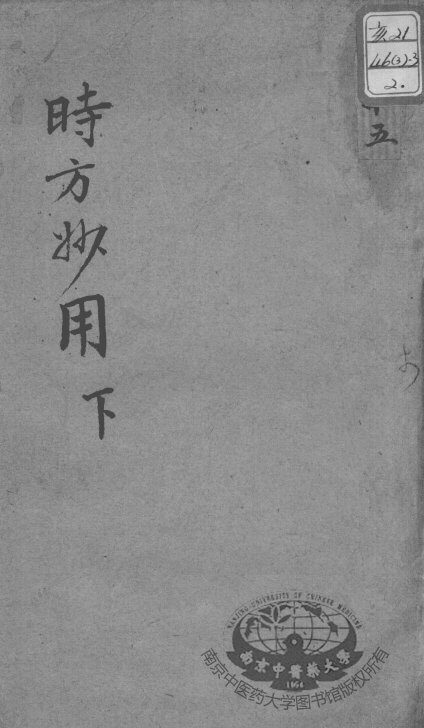 亥21
46(3)-3
2.
五
時方妙用 下
NANJING UNIVERSITY OF CHINESE MEDICINE
南京中醫藥大學
1954
南京中医药大学图书馆版权所有